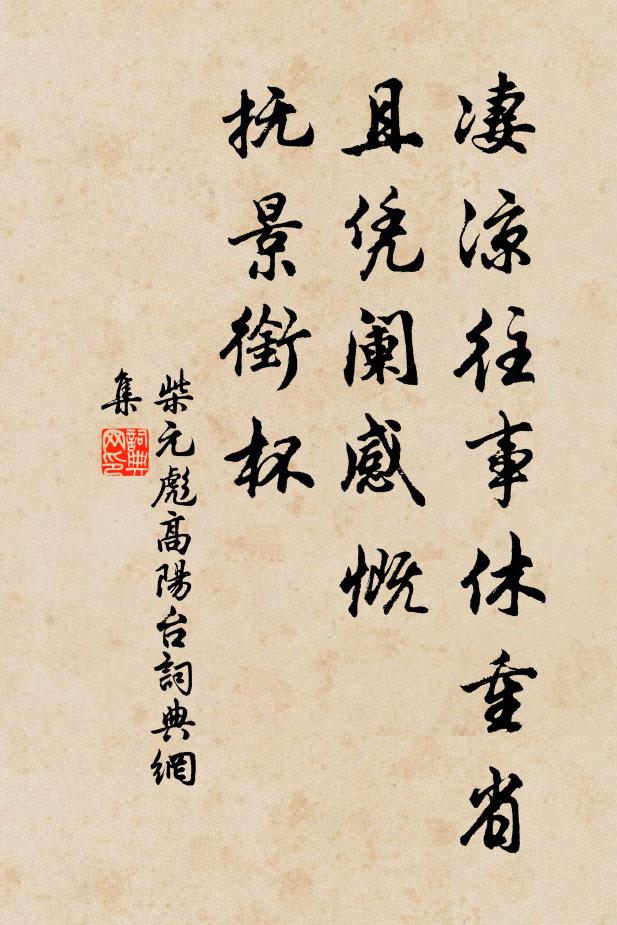 凄凉往事休重省
且凭阑感慨
抚景衔杯
柴元彪高陽台詞典網
集
詞典
网印